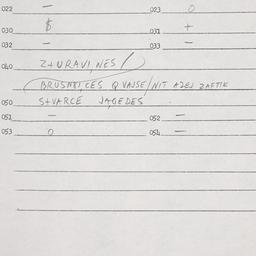 022 — 023 0
030 $ 031 +
032 — 033 —
040 Z+URAVI,NES
BRUSNI,CES Q VAJSE/NIT AZEJ ZAFTIK
050 S+VARCE JAGEDES
051 — 052 —
053 0 054 —